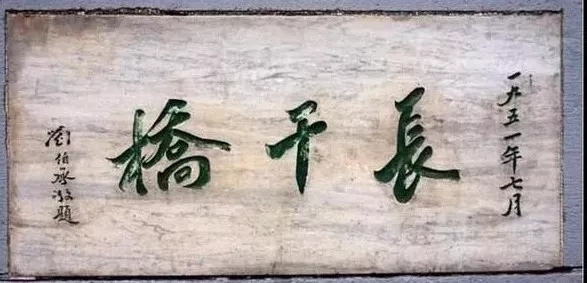 一九五一年七月
長干橋
劉伯承敬題